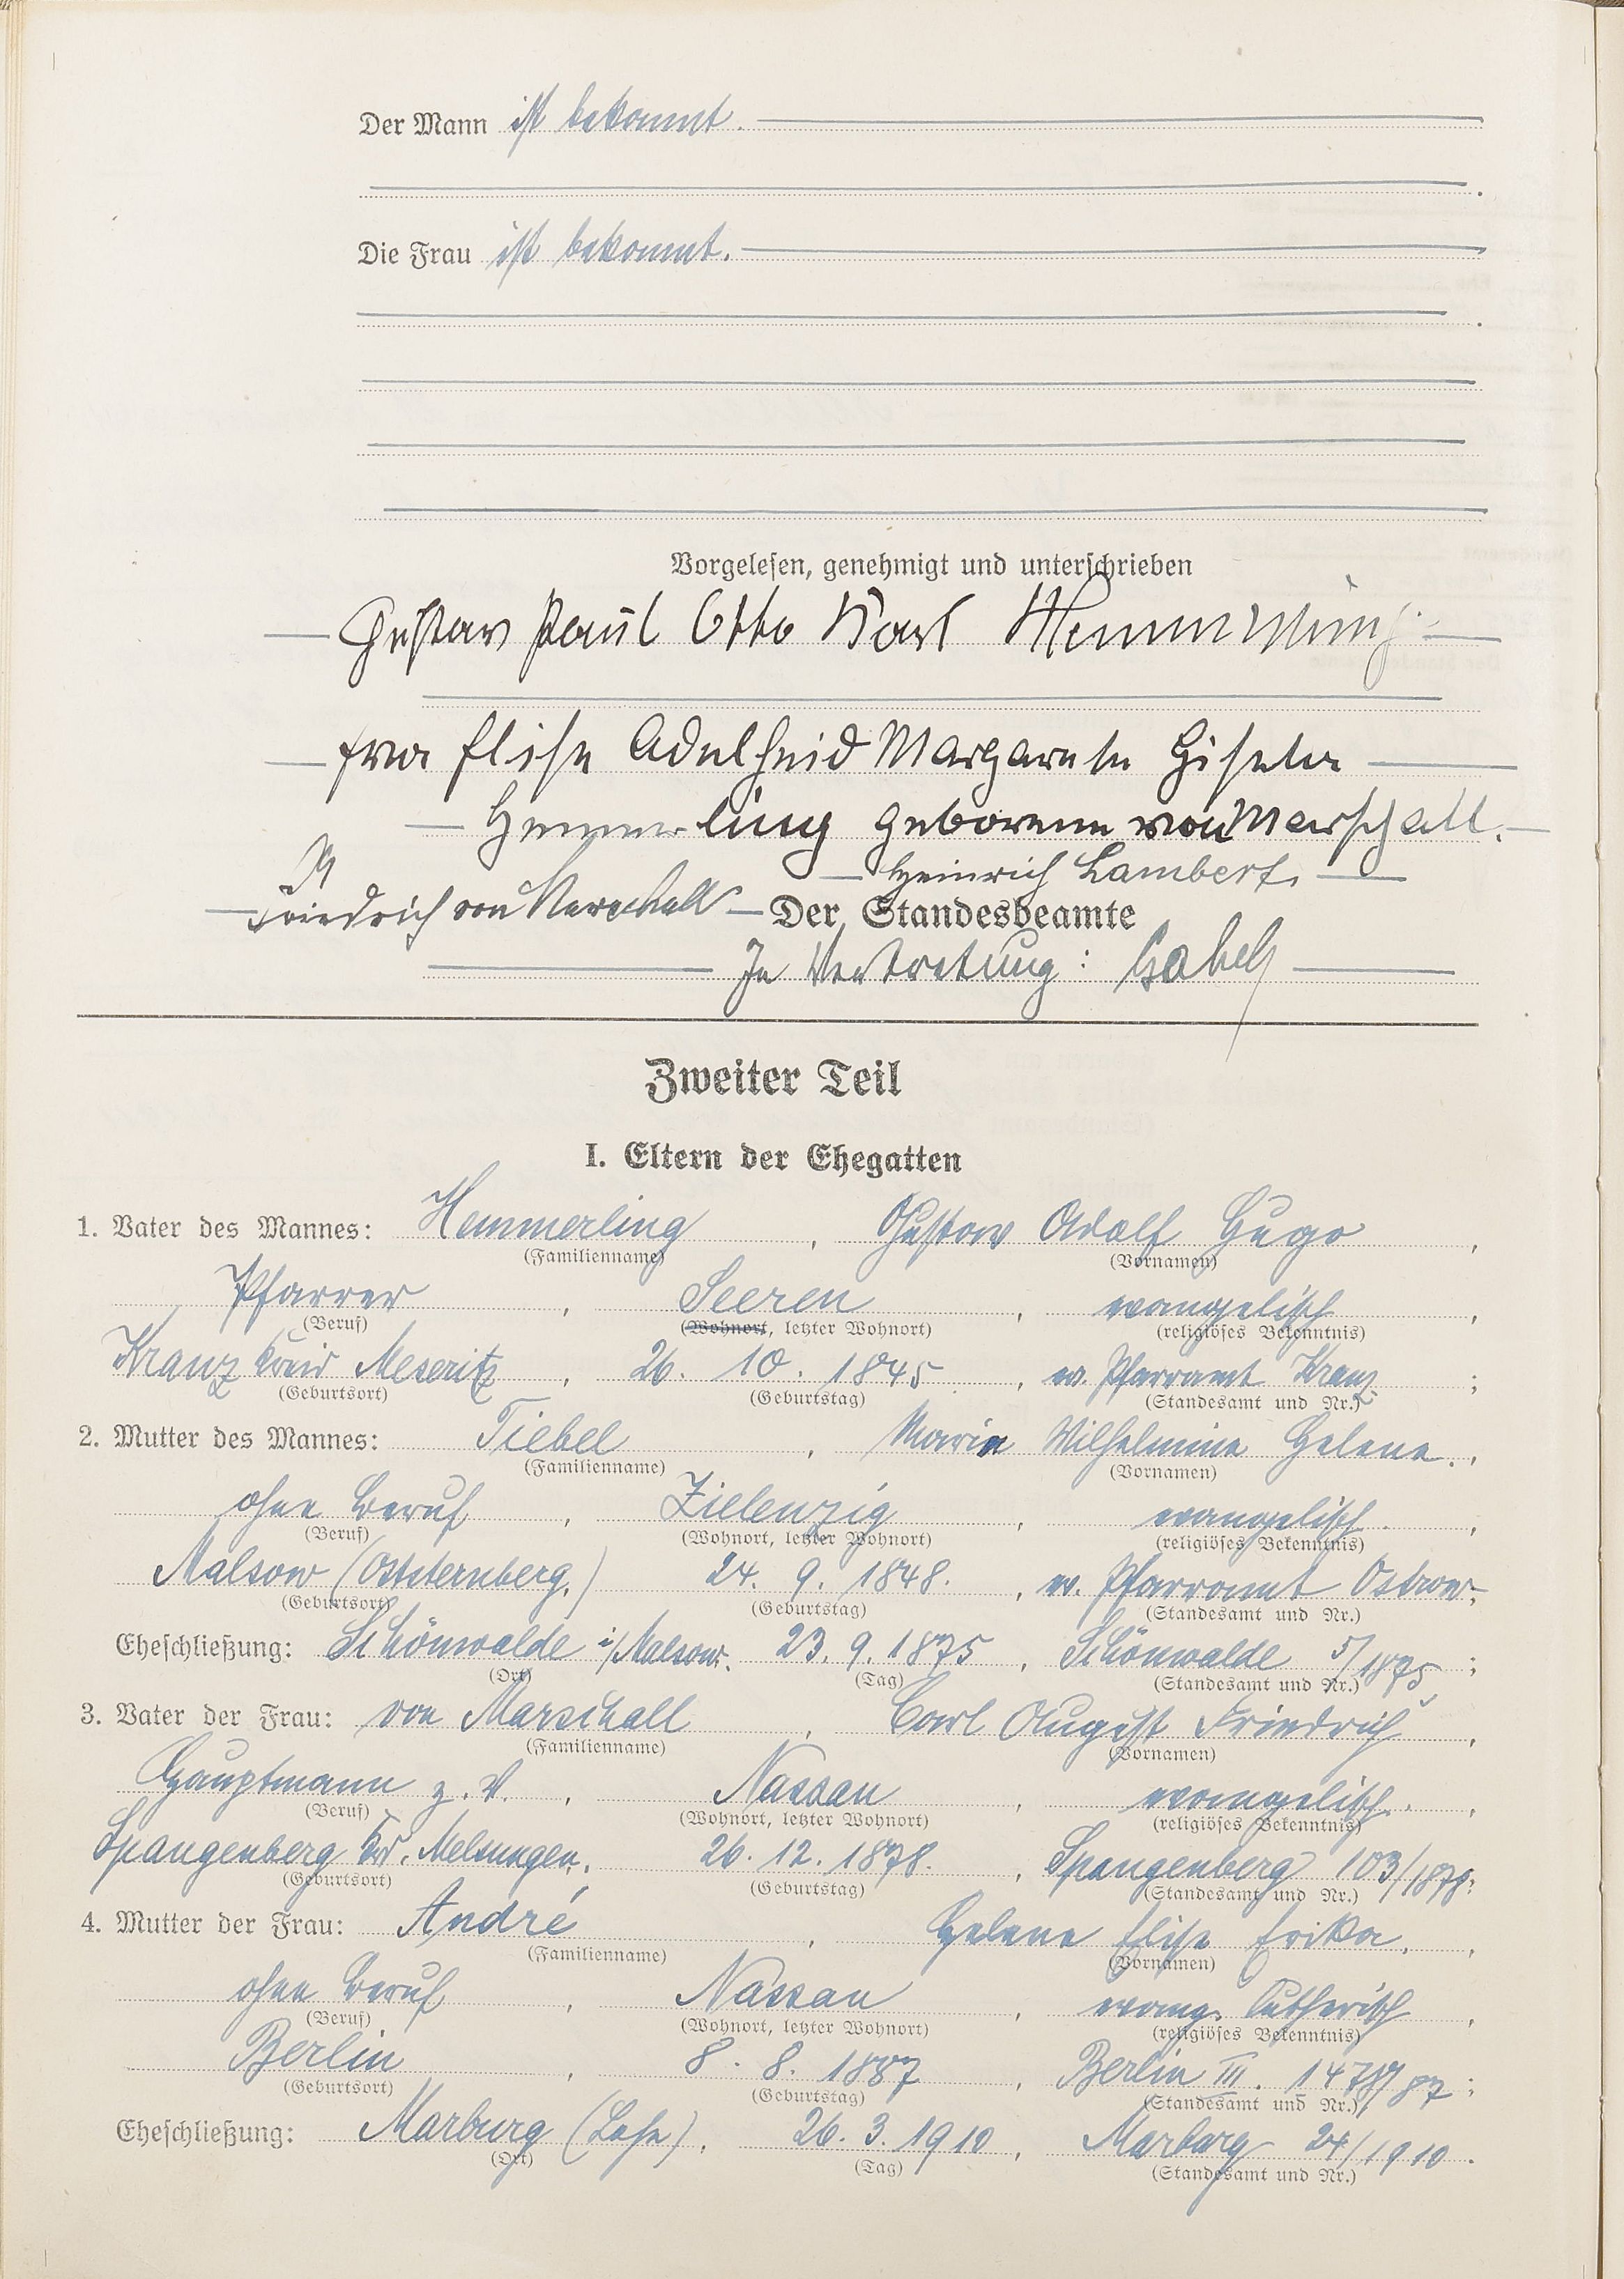 Der Mann ist bekannt.
Die Frau ist bekannt.
Vorgelesen, genehmigt und unterschrieben
Gustav Paul Otto Karl Hemmerling
Elise Adelheid Margarete Gisela
Hemmerling geborene von Marschall.
Heinrich Lambert.
Friedrich von Marschall Der Standesbeamte
In Vertretung:
Zweiter Teil
I. Eltern der Ehegatten
1. Vater des Mannes: Hemmerling, Gustav Adolf Hugo,
(Familienname) (Vornamen)
Pfarrer, Seeren, evangelisch,
(Beruf) (Wohnort, letzter Wohnort) (religiöses Bekenntnis)
Kranz Kreis Meseritz, 26. 10. 1845, ev. Pfarramt Kranz;
(Geburtsort) (Geburtstag) (Standesamt und Nr.)
2. Mutter des Mannes: Tiebel, Marie Wilhelmine Helene,
(Familienname) (Vornamen)
ohne Beruf, Zielenzig, evangelisch,
(Beruf) (Wohnort, letzter Wohnort) (religiöses Bekenntnis)
Malsow (Oststernberg.) 24. 9. 1848., ev. Pfarramt Ostrow;
(Geburtsort) (Geburtstag) (Standesamt und Nr.)
Eheschließung: Schönwalde i/Malsow. 23. 9. 1875, Schönwalde 5/1875;
(Ort) (Tag) (Standesamt und Nr.)
3. Vater der Frau: von Marschall, Carl August Friedrich,
(Familienname) (Vornamen)
Hauptmann z. V., Nassau, evangelisch,
(Beruf) (Wohnort, letzter Wohnort) (religiöses Bekenntnis)
Spangenberg Krs. Melsungen, 26. 12. 1878., Spangenberg 103/1878;
(Geburtsort) (Geburtstag) (Standesamt und Nr.)
4. Mutter der Frau: André, Helene Elise Erika,
(Familienname) (Vornamen)
ohne Beruf, Nassau, evang. lutherisch,
(Beruf) (Wohnort, letzter Wohnort) (religiöses Bekenntnis)
Berlin, 8. 8. 1887, Berlin III.
(Geburtsort) (Geburtstag) (Standesamt und Nr.)
Eheschließung: Marburg (Lahn), 26. 3. 1910, Marburg 24/1910.
(Ort) (Tag) (Standesamt und Nr.)